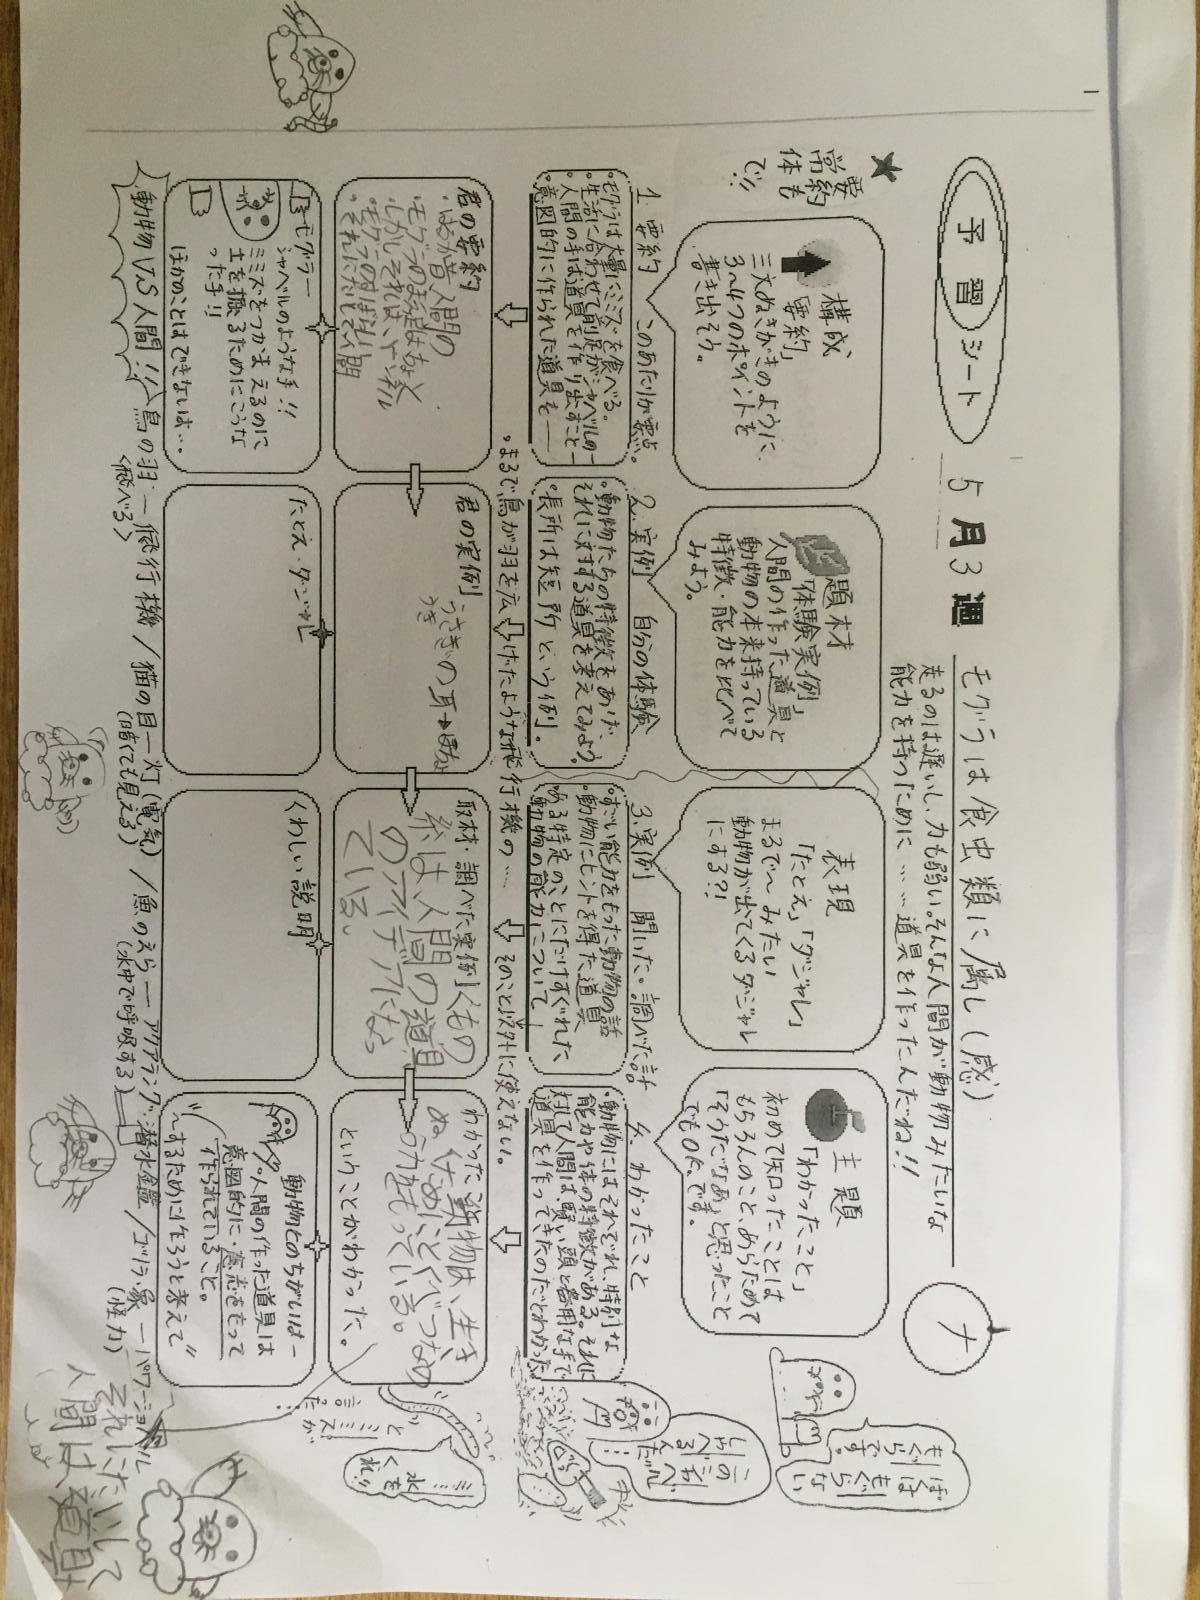 予習シート
5月3週
モグラは食虫類に属し(感)
ナ
走るのは遅いし、力も弱い。そんな人間が動物みたいな
能力を持つために……道具を作ったんだね!!
★
要約
常体も
で!!
構成
「要約」
三文ぬきがきのように、
3〜4つのポイントを
書き出そう。
題材
「体験実例」
人間の作った道具と
動物の本来持っている
特徴・能力を比べて
みよう。
表現
「たとえ」「ダジャレ」
まるで〜みたい
動物が出てくるダジャレ
にする?!
主題
「わかったこと」
初めて知ったことは
もちろんのこと、あらためて
「そうだなあ」と思ったこと
でもOK、です。
1. 要約 このあたりが要点。
・モグラは大量にミミズを食べる。
・生活に合わせて前足がシャベルの―
・人間の手は道具を作り出すこと―
・意図的に作られた道具を――
2. 実例 自分の体験
・動物たちの特徴をあげ、
それに対する道具を考えてみよう。
・長所は短所という例。
3. 実例 聞いた・調べた話
・すごい能力をもった動物の話
・動物にヒントを得た道具
・ある特定のことにだけすぐれた
動物の能力について!
4. わかったこと
・動物にはそれぞれ、特別な
能力や体の特徴がある。それに
対して人間は、賢い頭と器用な手で
道具を作ってきたのだとわかった。
・まるで鳥が羽を広げたような飛行機の……
そのこと以外に使えない。
君の要約
君の実例
うさぎの耳→ほちょ
うき
取材・調べた実例
くもの
糸は人間の道具
のアイデアになっ
ている。
わかったこと
動物は、生き
ぬくために、とくべつな
力をもっている。
ということがわかった。
モグラー
シャベルのような手!!
ミミズをつかまえるのに
土を掘るためにこうな
った手!!
ほかのことはできないよ…
たとえ・ダジャレ
くわしい説明
動物とのちがいは―
・人間の作った道具は
意図的に・意志をもって
作られていること。
"〜するために作ろうと考えて"
動物VS人間!!
鳥の羽―飛行機/猫の目―灯(電気)/魚のえら―アクアラング、潜水艦/ゴリラ、象―パワーショベル
<飛べる>
(暗くても見える)
(水中で呼吸する)
(怪力)
それにたいして
人間は、道具を
ぼくは
もぐら
です。
もぐら
ない
とミミズが
言った…